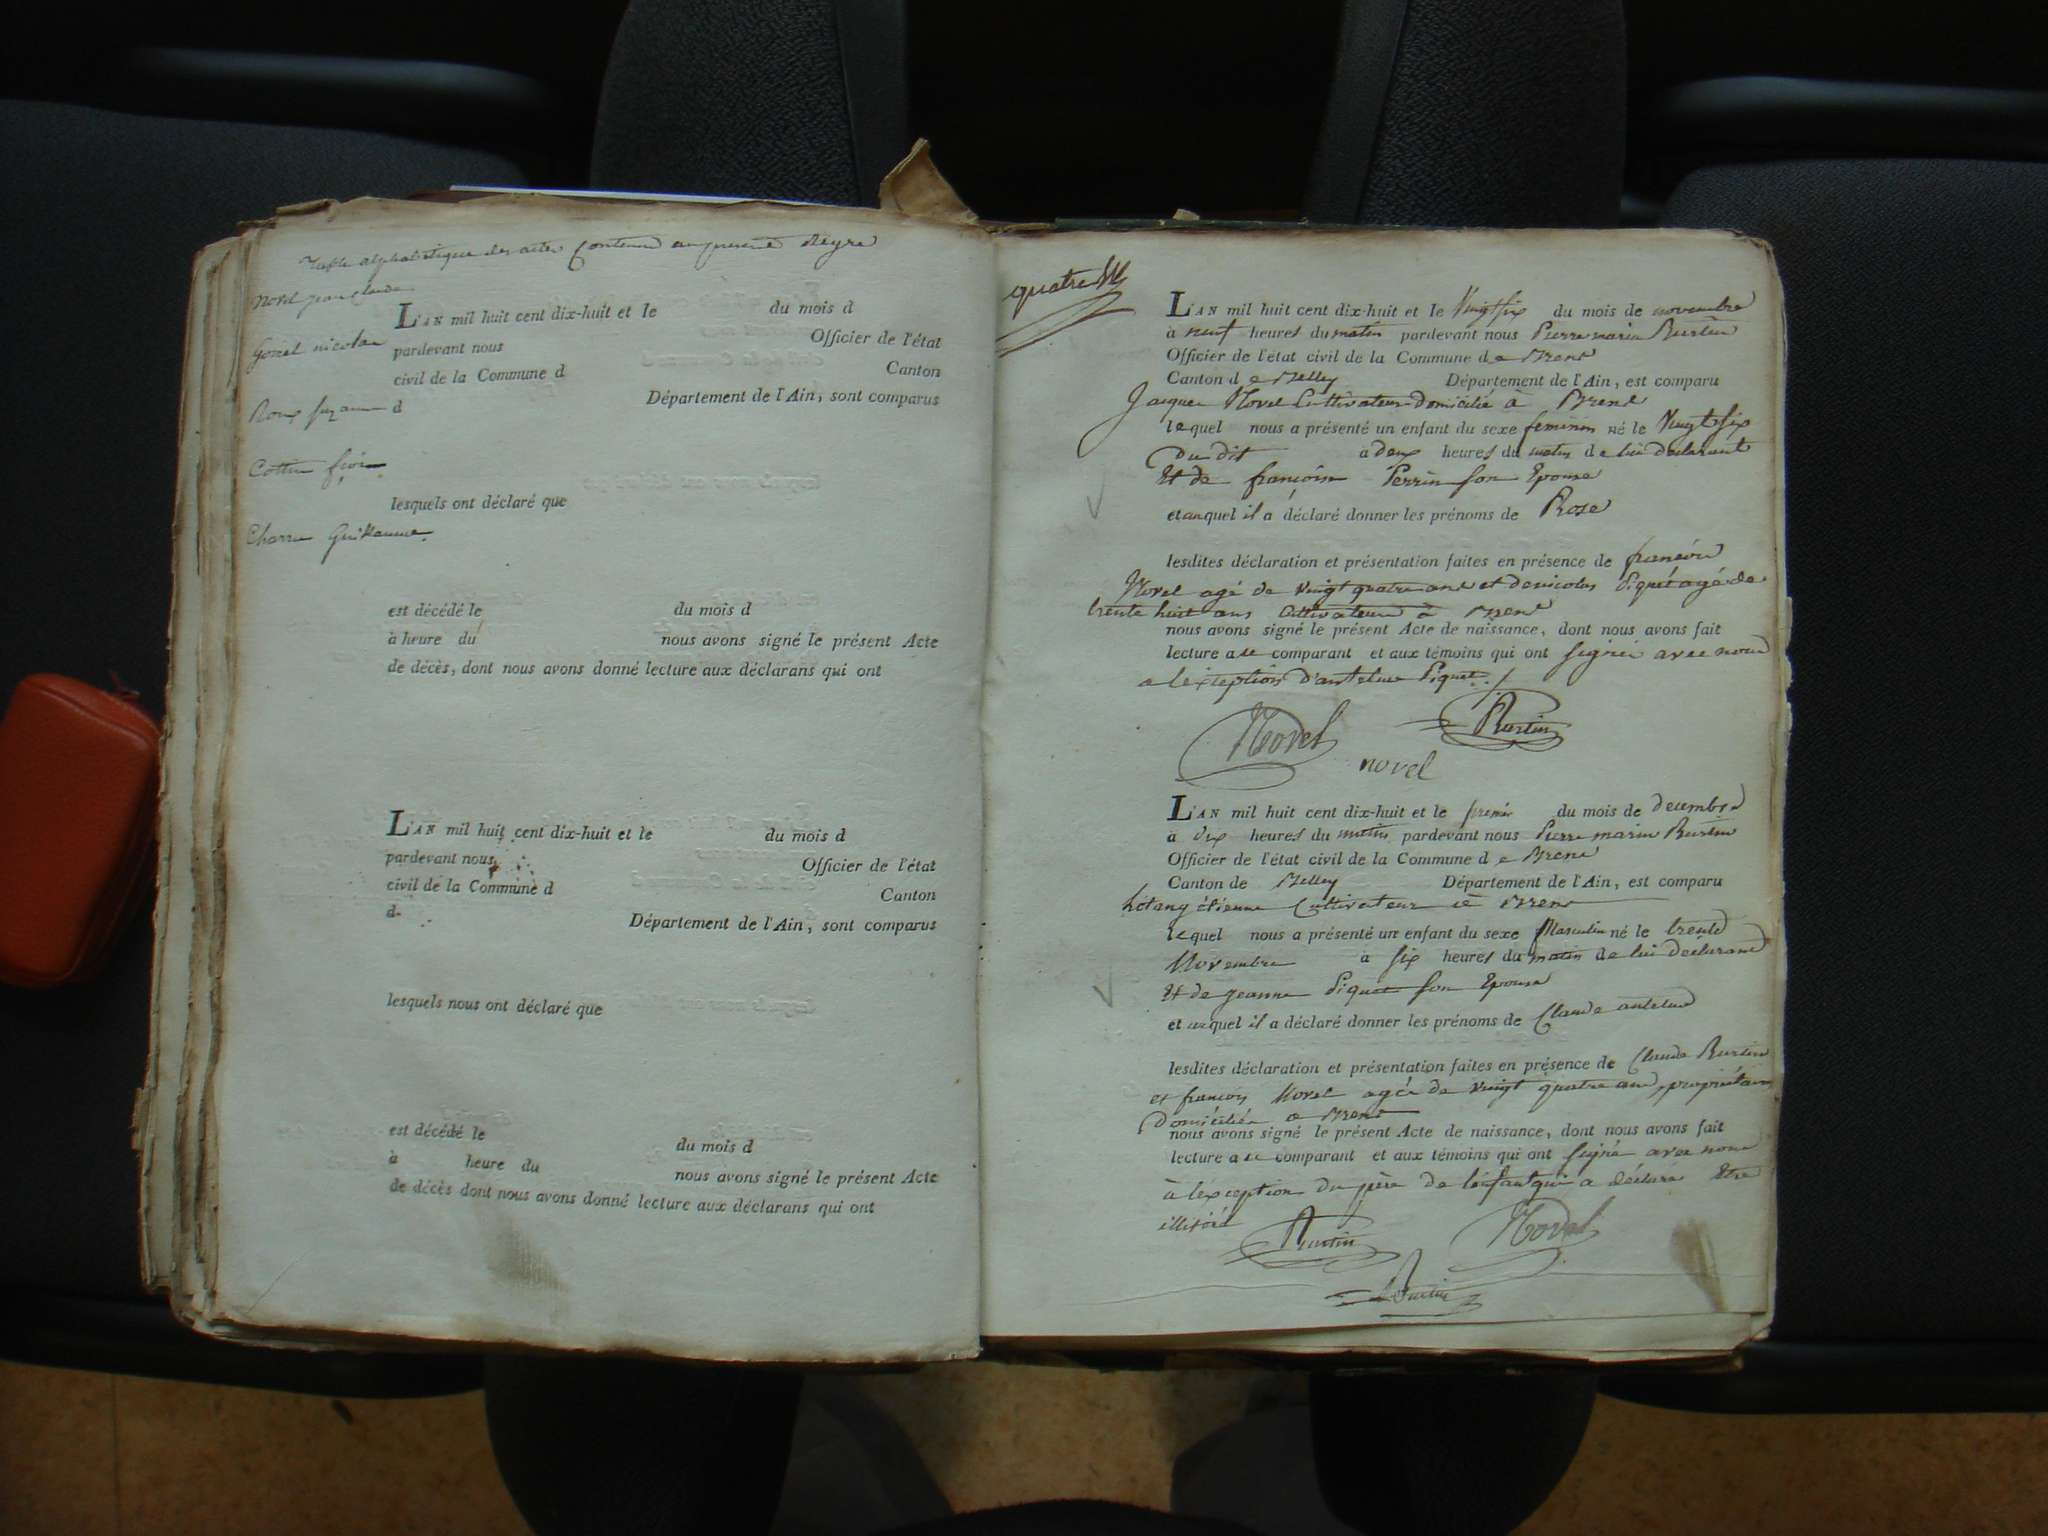 Table alphabétique des actes Contenu au présent
novel jean Claude
L'AN mil huit cent dix-huit et le du mois d
nicolas
pardevant nous Officier de l'état
civil de la Commune d Canton
Roux d
Département de l'Ain, sont comparus
Cottin
lesquels ont déclaré que
Charru Guillaume.
est décédé le du mois d
à heure du nous avons signé le présent Acte
de décès, dont nous avons donné lecture aux déclarans qui ont
L'AN mil huit cent dix-huit et le du mois d
pardevant nous Officier de l'état
civil de la Commune d Canton
d Département de l'Ain, sont comparus
lesquels nous ont déclaré que
est décédé le du mois d
à heure du nous avons signé le présent Acte
de décès dont nous avons donné lecture aux déclarans qui ont
quatre
L'AN mil huit cent dix-huit et le Vingt six du mois de novembre
à neuf heures du matin pardevant nous Pierre marin Burtin
Officier de l'état civil de la Commune de Brens
Canton de Belley Département de l'Ain, est comparu
Jacques Novel Cultivateur domicilié à Brens
lequel nous a présenté un enfant du sexe feminin né le Vingt six
Du dit à deux heures du matin de lui déclarant
Et de françoise Perrin son Epouse
et auquel il a déclaré donner les prénoms de Rose
lesdites déclaration et présentation faites en présence de françois
Novel agé de vingt quatre ans et de nicolas Piquet agé de
trente huit ans Cultivateurs à Brens
nous avons signé le présent Acte de naissance, dont nous avons fait
lecture au comparant et aux témoins qui ont signés avec nous
a l'exception d'antelme Piquet
Novel Burtin
novel
L'AN mil huit cent dix-huit et le premier du mois de decembre
à dix heures du matin pardevant nous Pierre marin Burtin
Officier de l'état civil de la Commune de Brens
Canton de Belley Département de l'Ain, est comparu
étienne Cultivateur à Brens
lequel nous a présenté un enfant du sexe Masculin né le trente
Novembre à six heures du matin de lui déclarant
Et de jeanne Piquet son Epouse
et auquel il a déclaré donner les prénoms de Claude antelme
lesdites déclaration et présentation faites en présence de Claude Burtin
et françois Novel agés de vingt quatre ans, propriétaires
Domiciliés a Brens
nous avons signé le présent Acte de naissance, dont nous avons fait
lecture au comparant et aux témoins qui ont signé avec nous
à l'exception du père de l'enfant qui a déclaré Etre
illitéré
Burtin Novel
Burtin